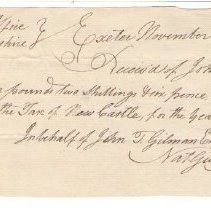 ffice }
shire } Exeter November
Received of John
pounds two Shillings & six pence
the Tax of New Castle, for the Year
In behalf of John T. Gilman E
Nat Gi